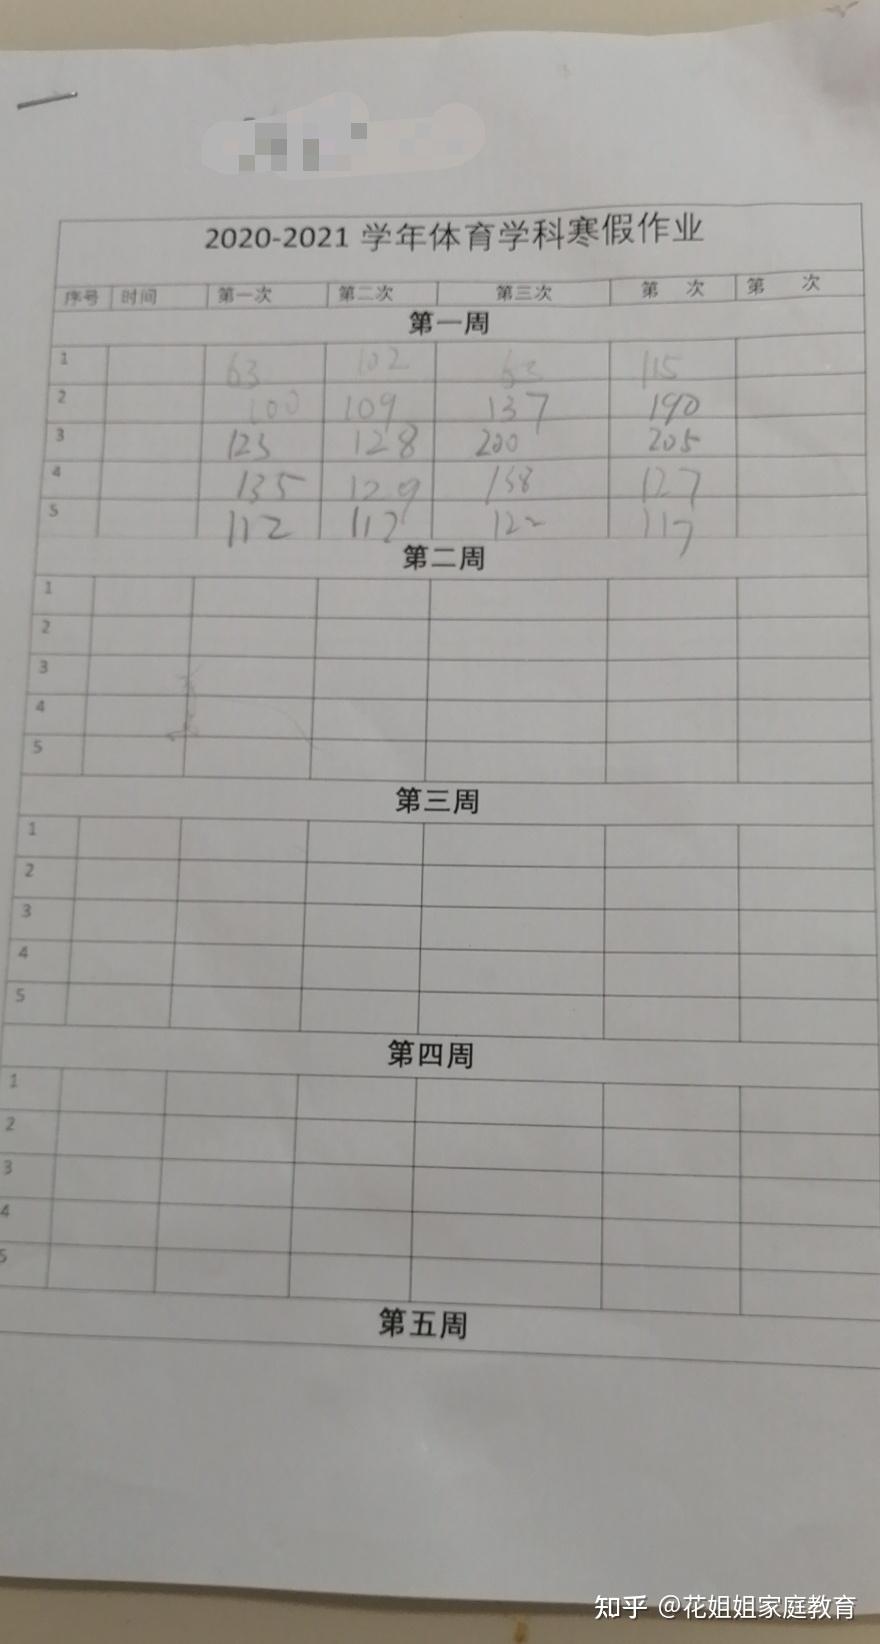 2020-2021 学年体育学科寒假作业
序号 时间 第一次 第二次 第三次 第 次 第 次
第一周
1 63 102 63 115
2 100 109 137 190
3 123 128 200 205
4 135 129 138 127
5 112 112 122 117
第二周
1
2
3
4
5
第三周
1
2
3
4
5
第四周
1
2
3
4
5
第五周
知乎 @花姐姐家庭教育